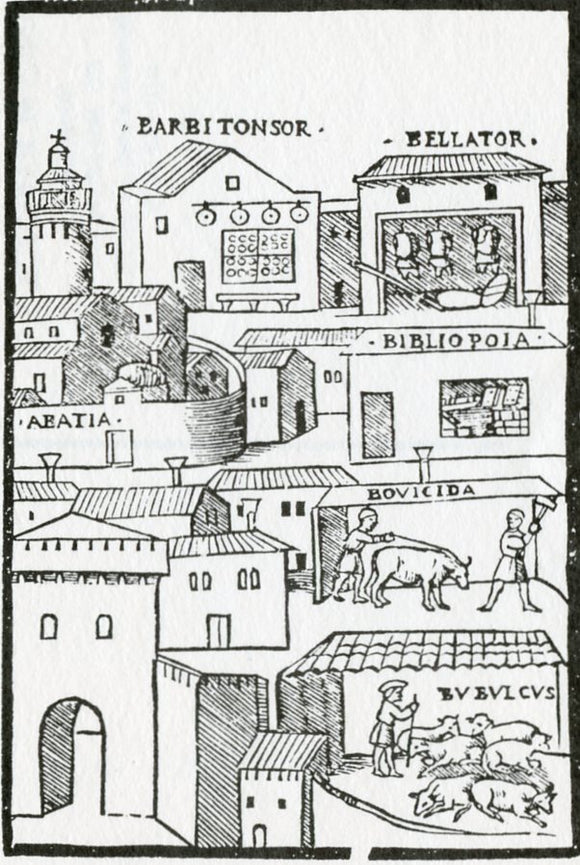 · BARBITONSOR ·
· BELLATOR ·
· BIBLIOPOLA ·
· ABATIA ·
BOVICIDA
BVBVLCVS